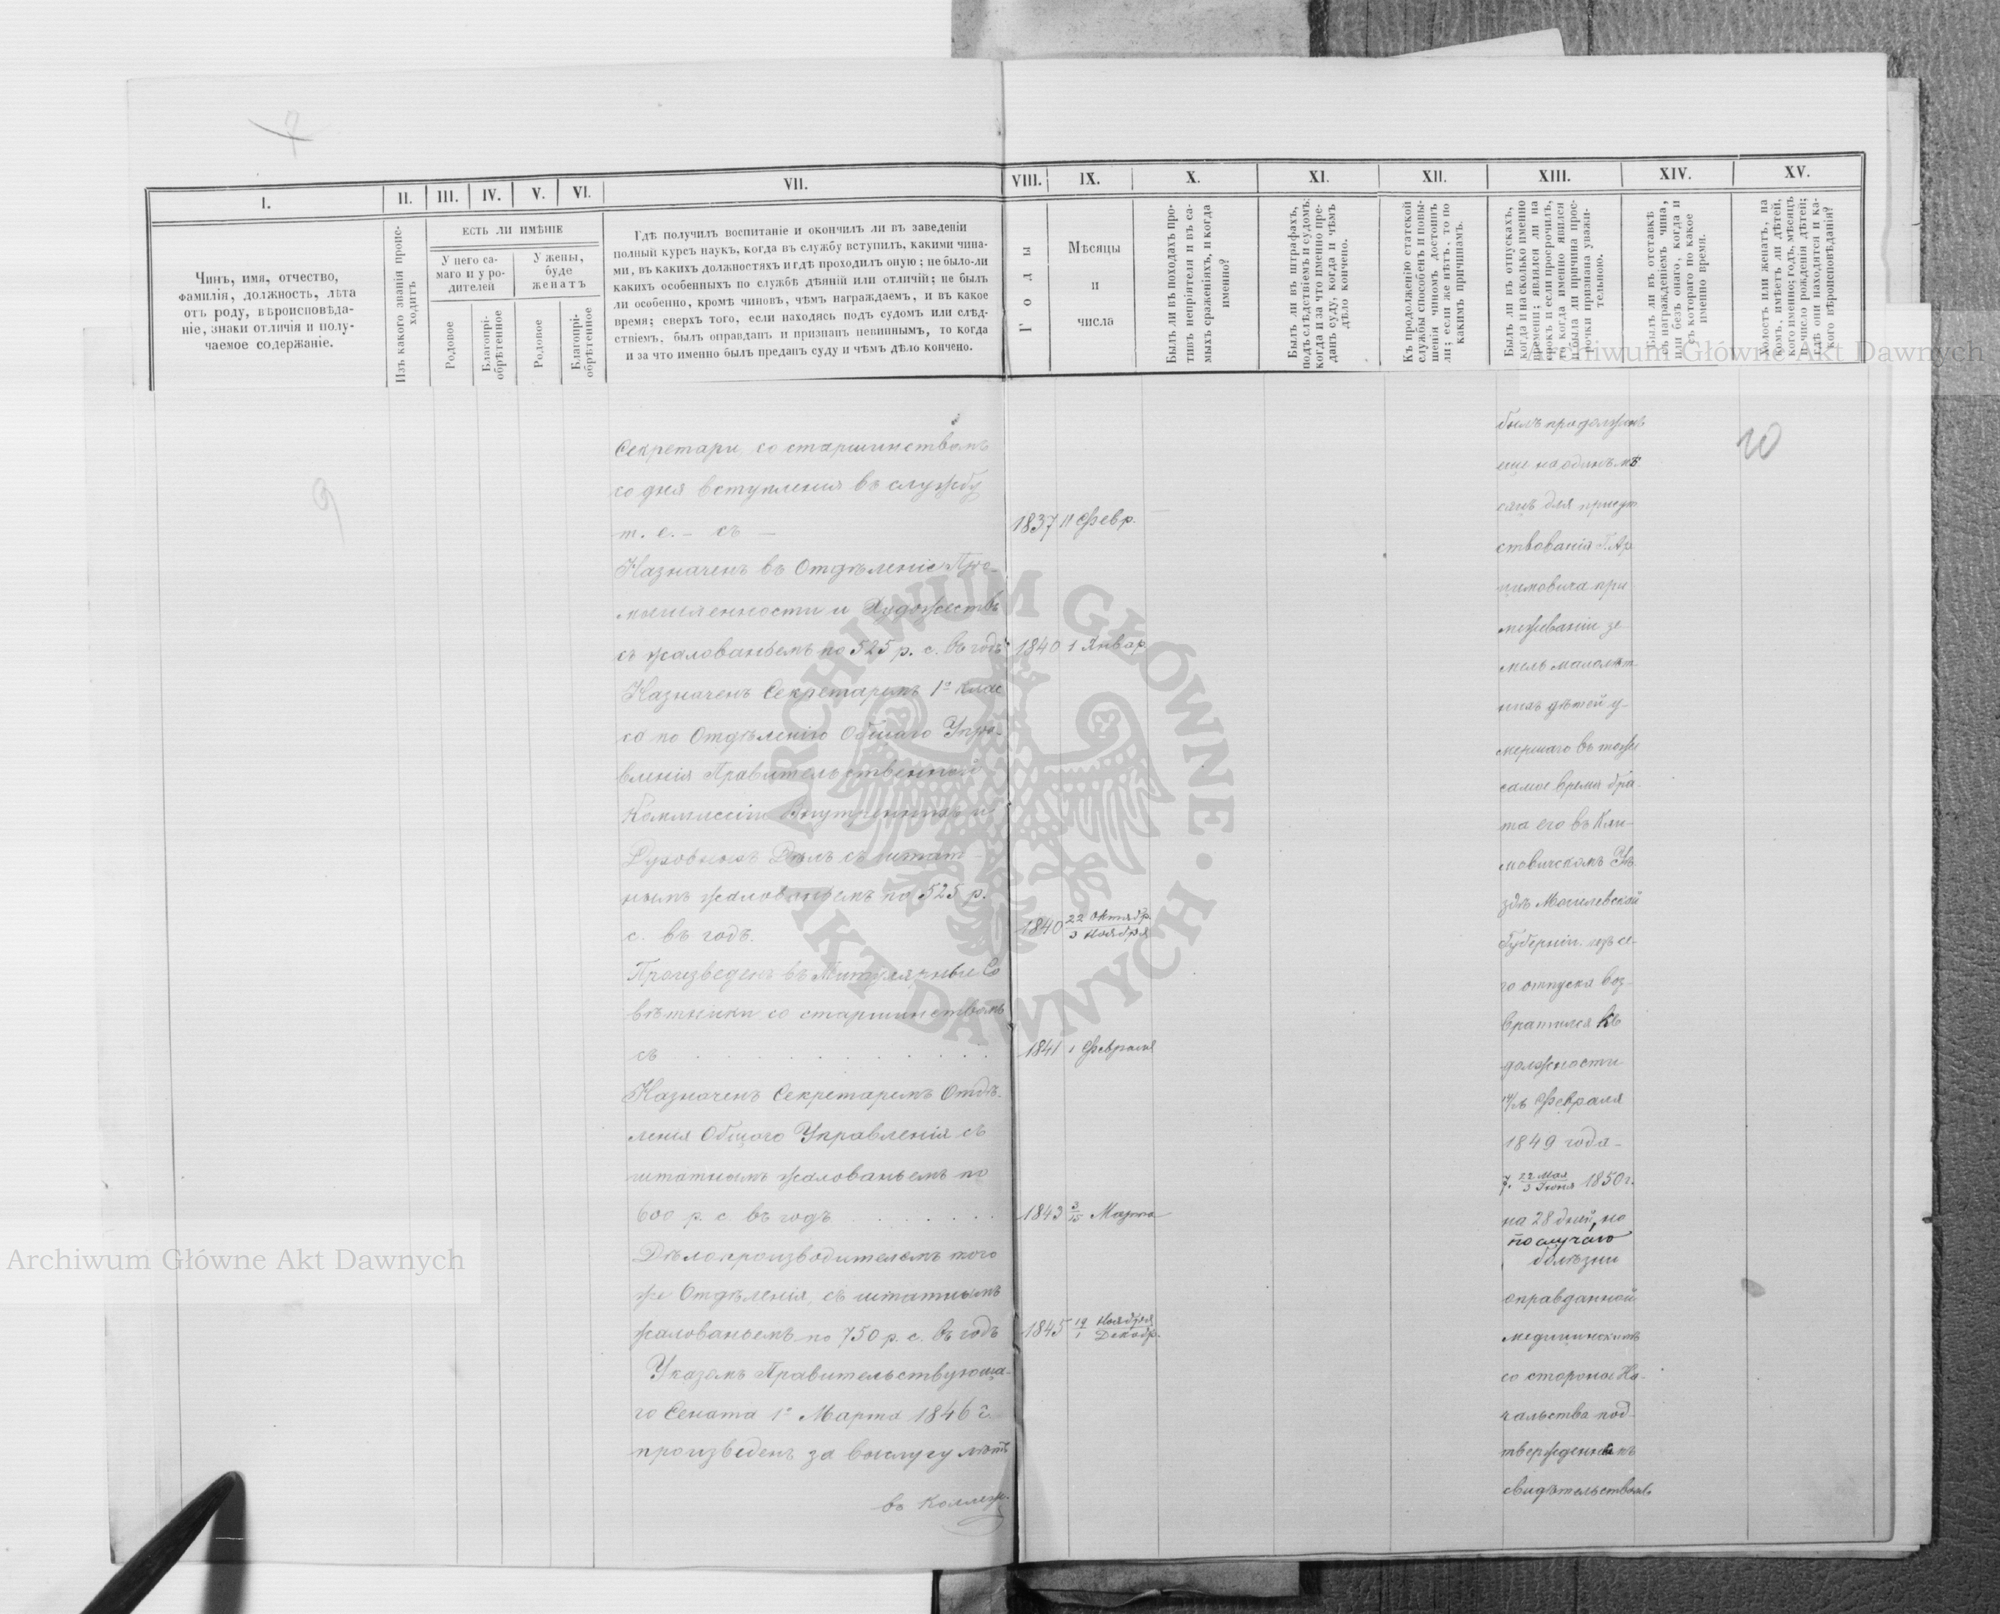 7
I.
II.
III.
IV.
V.
VI.
VII.
VIII.
IX.
X.
XI.
XII.
XIII.
XIV.
XV.
Чинъ, имя, отчество,
фамилія, должность, лѣта
отъ роду, вѣроисповѣда-
ніе, знаки отличія и полу-
чаемое содержаніе.
Изъ какого званія проис-
ходитъ
ЕСТЬ ЛИ ИМѢНІЕ
У него са-
маго и у ро-
дителей
У жены,
буде
женатъ
Родовое
Благопрі-
обрѣтенное
Родовое
Благопрі-
обрѣтенное
Гдѣ получилъ воспитаніе и окончилъ ли въ заведеніи
полный курсъ наукъ, когда въ службу вступилъ, какими чина-
ми, въ какихъ должностяхъ и гдѣ проходилъ оную; не было-ли
какихъ особенныхъ по службѣ дѣяній или отличій; не былъ
ли особенно, кромѣ чиновъ, чѣмъ награждаемъ, и въ какое
время; сверхъ того, если находясь подъ судомъ или слѣд-
ствіемъ, былъ оправданъ и признанъ невиннымъ, то когда
и за что именно былъ преданъ суду и чѣмъ дѣло кончено.
Годы
Мѣсяцы
и
числа
Былъ ли въ походахъ про-
тивъ непріятеля и въ са-
мыхъ сраженіяхъ, и когда
именно?
Былъ ли въ штрафахъ,
подъ слѣдствіемъ и судомъ;
когда и за что именно пре-
данъ суду, когда и чѣмъ
дѣло кончено.
Къ продолженію статской
службы способенъ и повы-
шенія чиномъ достоинъ
ли; если же нѣтъ, то по
какимъ причинамъ.
Былъ ли въ отпускахъ,
когда и на сколько именно
времени; явился ли на
срокъ и если просрочилъ,
то когда именно явился
и была ли причина прос-
рочки признана уважи-
тельною.
Былъ ли въ отставкѣ
съ награжденіемъ чина,
или безъ онаго, когда и
съ котораго по какое
именно время.
Холостъ или женатъ, на
комъ, имѣетъ ли дѣтей,
кого именно; годъ, мѣсяцъ
и число рожденія дѣтей;
гдѣ они находятся и ка-
кого вѣроисповѣданія?
9
Секретари со старшинствомъ
со дня вступленія въ службу
т. е. – съ –
1837 11 Февр.
Назначенъ въ Отдѣленіе Про-
мышленности и Художествъ
съ жалованьемъ по 525 р. с. въ годъ
1840 1 Январ
Назначенъ Секретаремъ 1º клас
са по Отдѣленію Общаго Упра-
вленія Правительственной
Коммиссіи Внутреннихъ и
Духовныхъ Дѣлъ съ штат-
нымъ жалованьемъ по 525 р.
с. въ годъ.
1840 22 Октябр. / 3 Ноября
Произведенъ въ Титулярные Со
вѣтники со старшинствомъ
съ . . . . . . . . . .
1841 1 Февраля
Назначенъ Секретаремъ Отдѣ-
ленія Общаго Управленія съ
штатнымъ жалованьемъ по
600 р. с. въ годъ . . . . . .
1843 3/15 Марта
Дѣлопроизводителемъ того
же Отдѣленія, съ штатнымъ
жалованьемъ по 750 р. с. въ годъ
1845 19 Ноября / 1 Декабр.
Указомъ Правительствующа-
го Сената 1º Марта 1846 г.
произведенъ за выслугу лѣтъ
въ Коллеж.
былъ продолженъ
еще на одинъ мѣ
сяцъ для присут
ствованія Г. Ар
цимовича при
межеваніи зе-
мель малолѣт
нихъ дѣтей у-
мершаго въ тоже
самое время бра-
та его въ Кли-
мовичскомъ Уѣ
здѣ Могилевской
Губерніи. изъ се-
го отпуска воз-
вратился къ
должности
Февраля
1849 года.
7. 22 Мая / 3 Іюня 1850 г.
на 28 дней, но
по случаю
болѣзни
оправданной
медицинскимъ
со стороны На-
чальства под-
твержденнымъ
свидѣтельствомъ
10
Archiwum Główne Akt Dawnych
Archiwum Główne Akt Dawnych
ARCHIWUM GŁÓWNE · AKT DAWNYCH ·